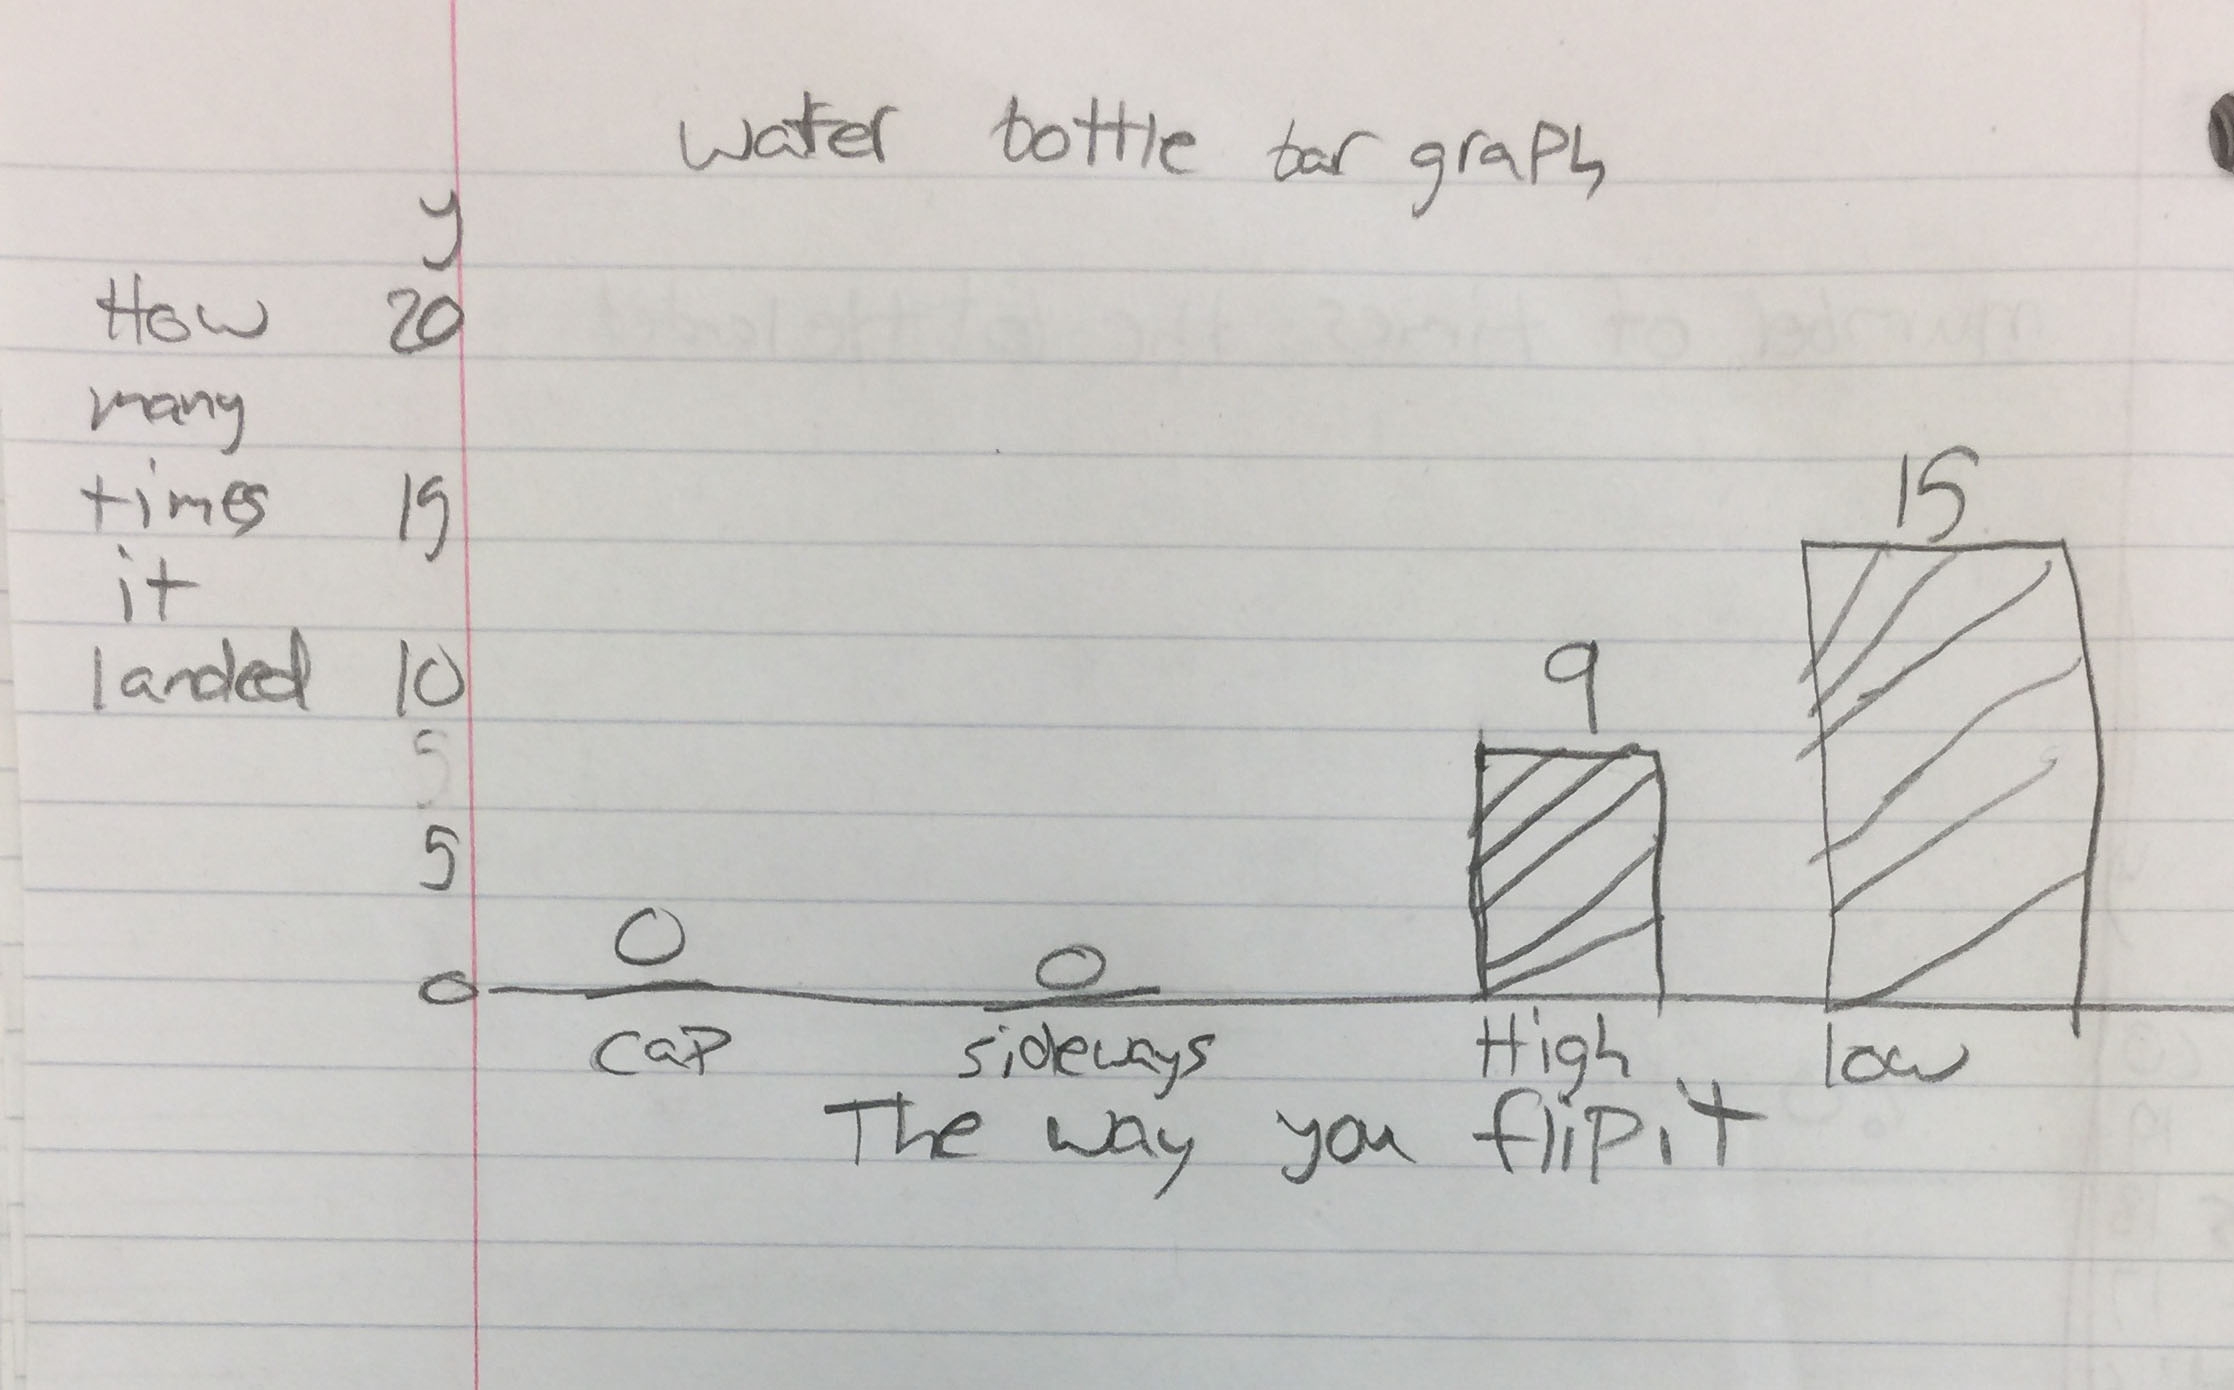 water bottle bar graph
y
How 20
many
times 15
it
landed 10
5
5
0
0
0
9
15
cap sideways High low
The way you flip it